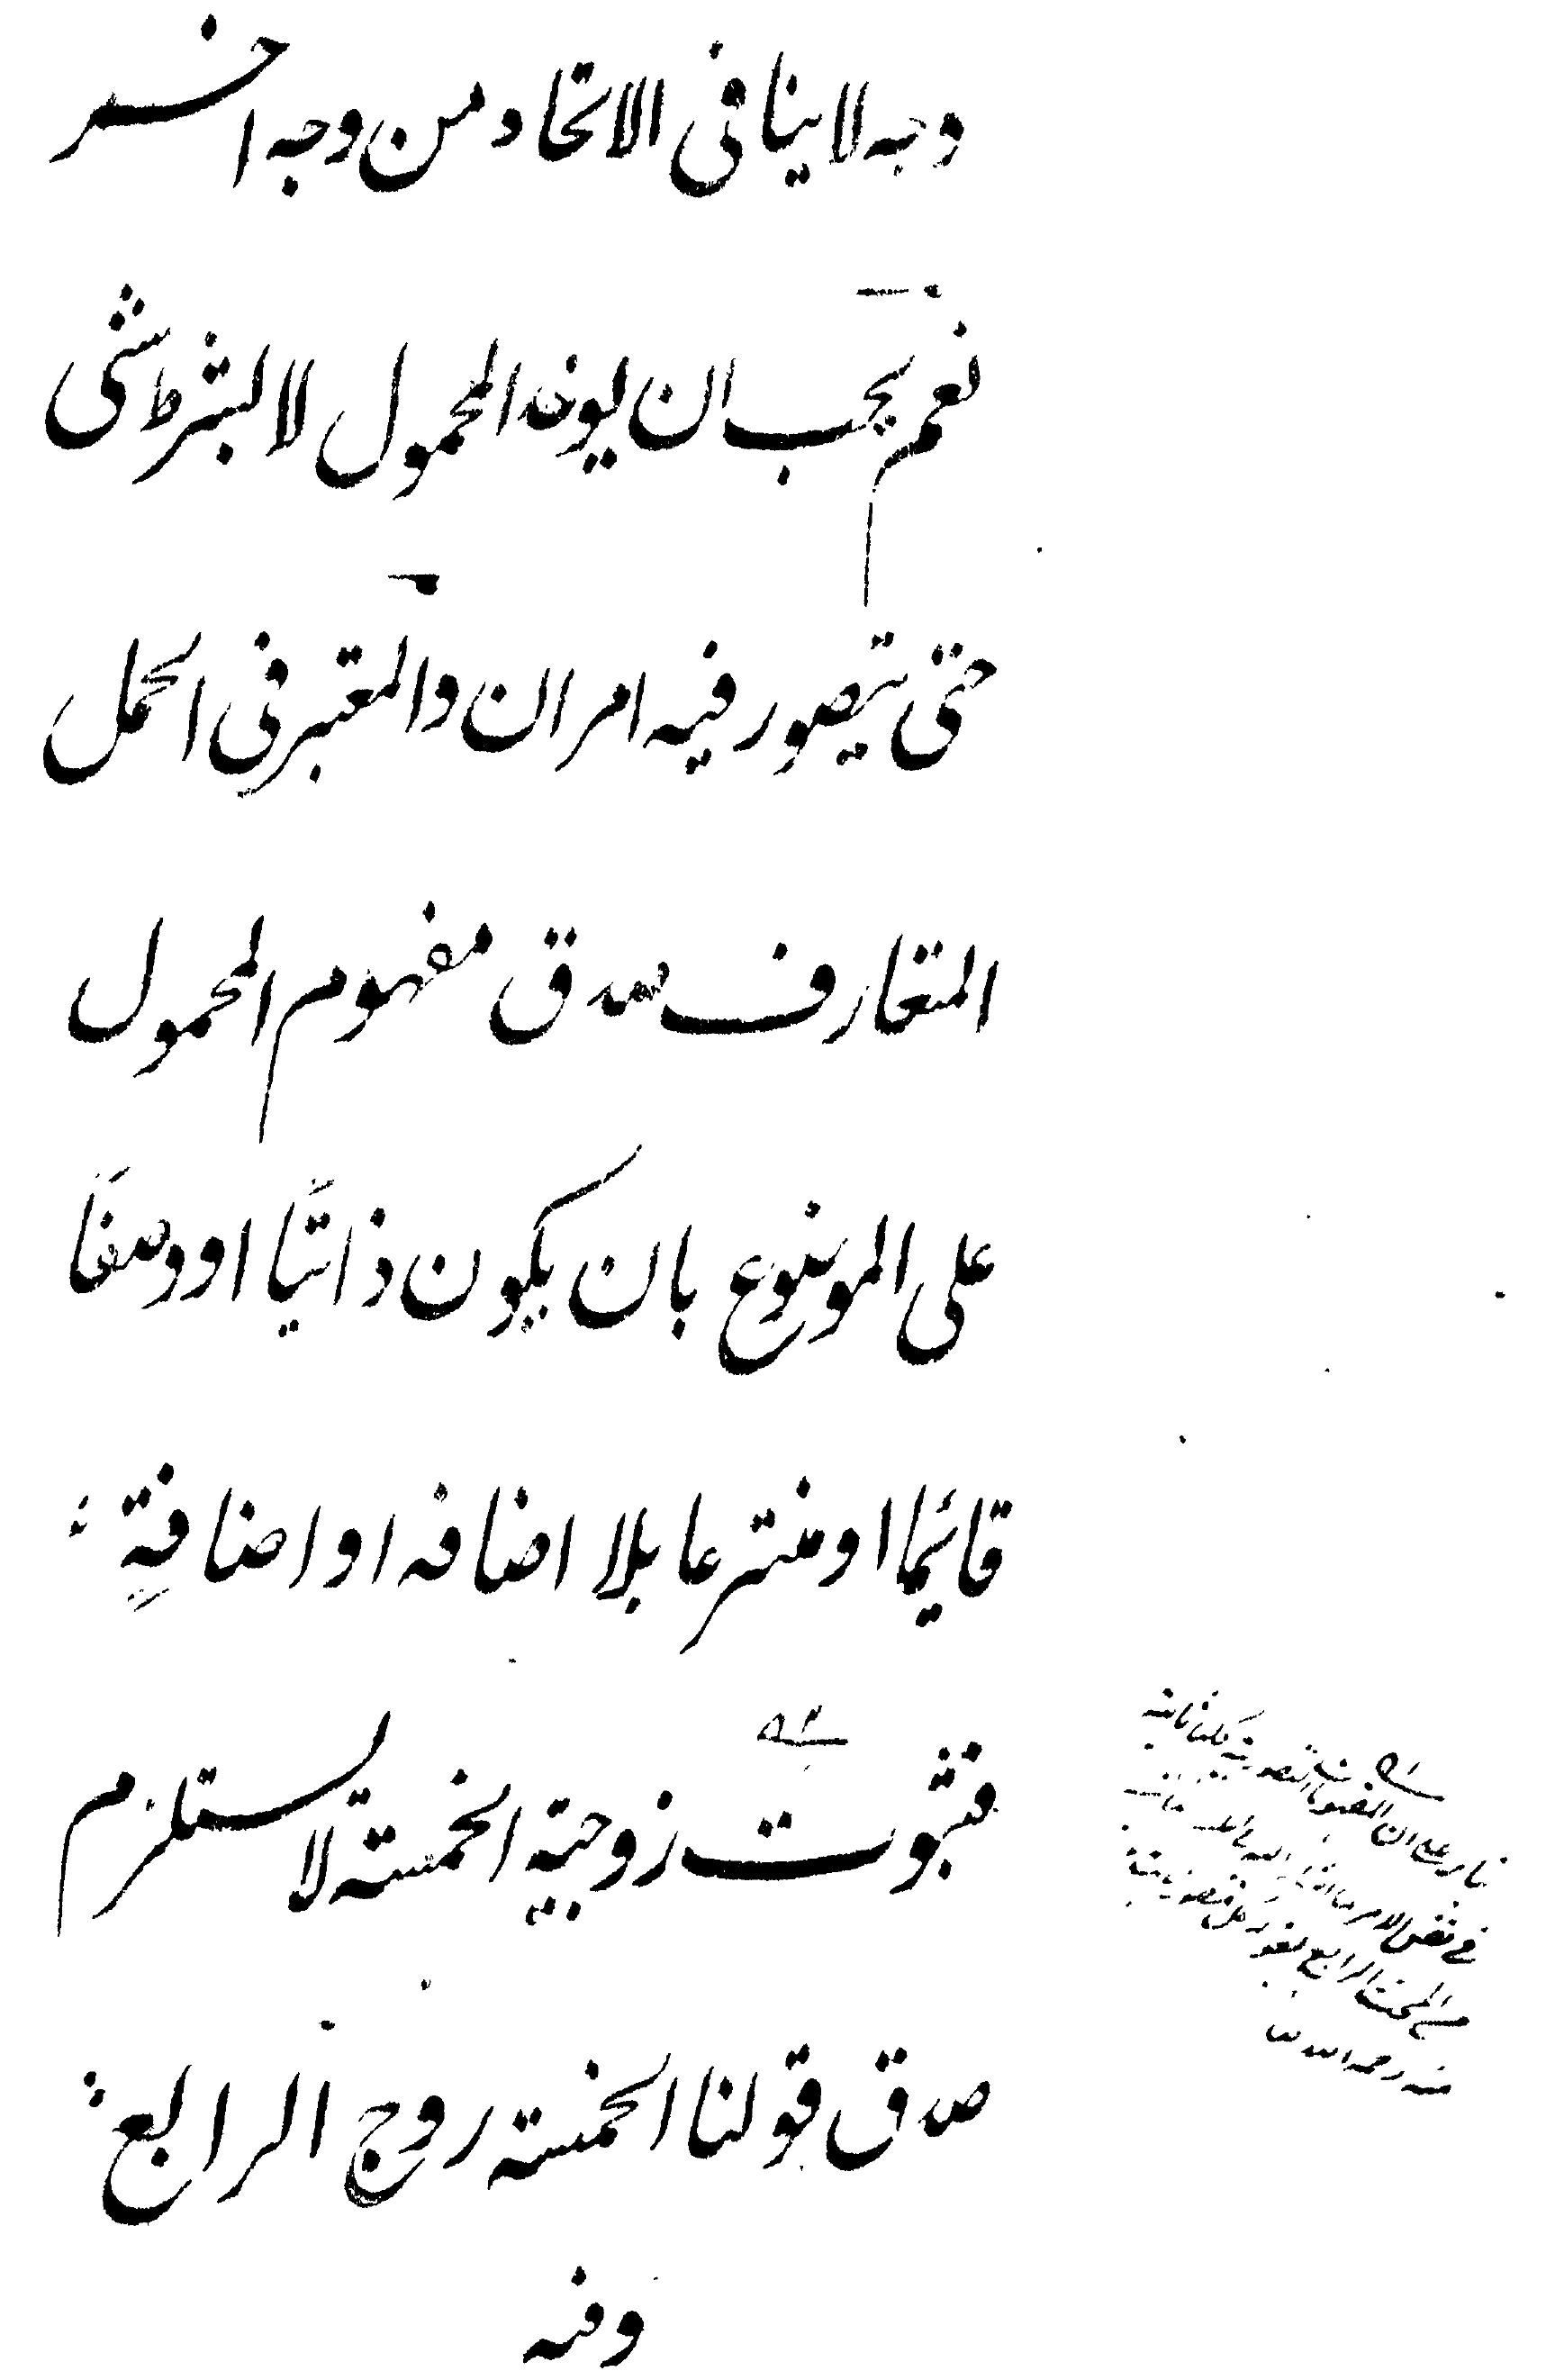 وجه لا ينافى الاتحاد من وجه اخر
نعم يجب ان يوخذ المحمول لا بشرط شى
حتى يتصور فيه امران والمعتبر فى الحمل
المتعارف صدق مفهوم المحمول
على الموضوع بان يكون ذاتيًا او وصفًا
قائيما او منتزعا بلا اضافه او اضافةٍ
فثبوت زوجية الخمسة لا يستلزم
صدق قولنا الخمسة زوج الرابع
وفيه
منه رحمه الله